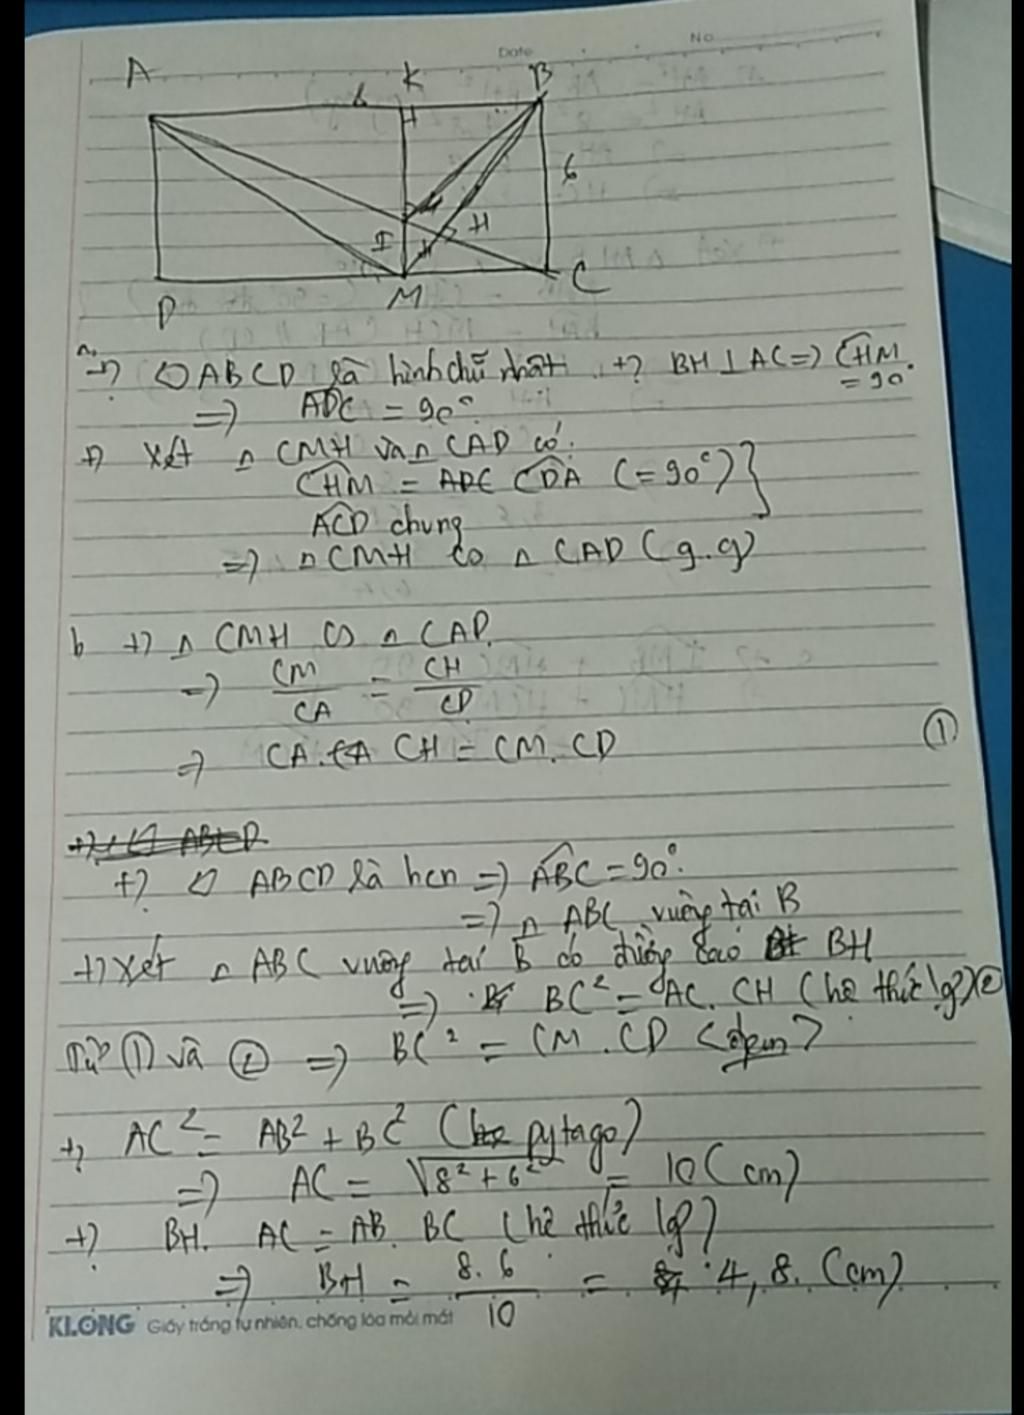 Date No
A K B
8
6
I H
D M C
a, +) ▱ ABCD là hình chữ nhật +) BH ⊥ AC => CHM = 90°
=> ADC = 90°
+) Xét △ CMH và △ CAD có:
CHM = CDA (= 90°) }
ACD chung
=> △ CMH ∽ △ CAD (g.g)
b +) △ CMH ∽ △ CAD.
=> CM/CA = CH/CD
=> CA. CH = CM. CD ①
+) ▱ ABCD
+) ▱ ABCD là hcn => ABC = 90°.
=> △ ABC vuông tại B
+) Xét △ ABC vuông tại B có đường cao BH
=> BC² = AC. CH (hệ thức lg) ②
Từ ① và ② => BC² = CM. CD <đpcm>
+) AC² = AB² + BC² (pytago)
=> AC = √8² + 6² = 10 (cm)
+) BH. AC = AB. BC (hệ thức lg)
=> BH = 8.6/10 = 4,8. (cm)
KLONG Giấy trắng tự nhiên, chống lóa mỏi mắt